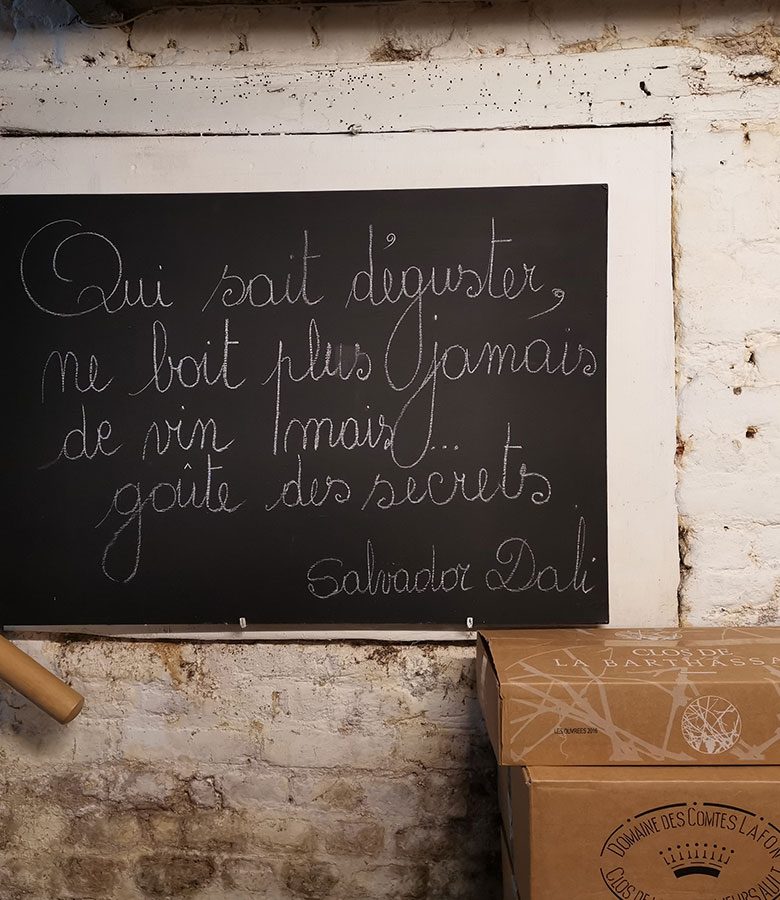 Qui sait déguster,
ne boit plus jamais
de vin mais...
goûte des secrets.
Salvador Dali
CLOS DE
LA BARTHASS
LES OUVREES 2016
DOMAINE DES COMTES LAFON
CLOS DE